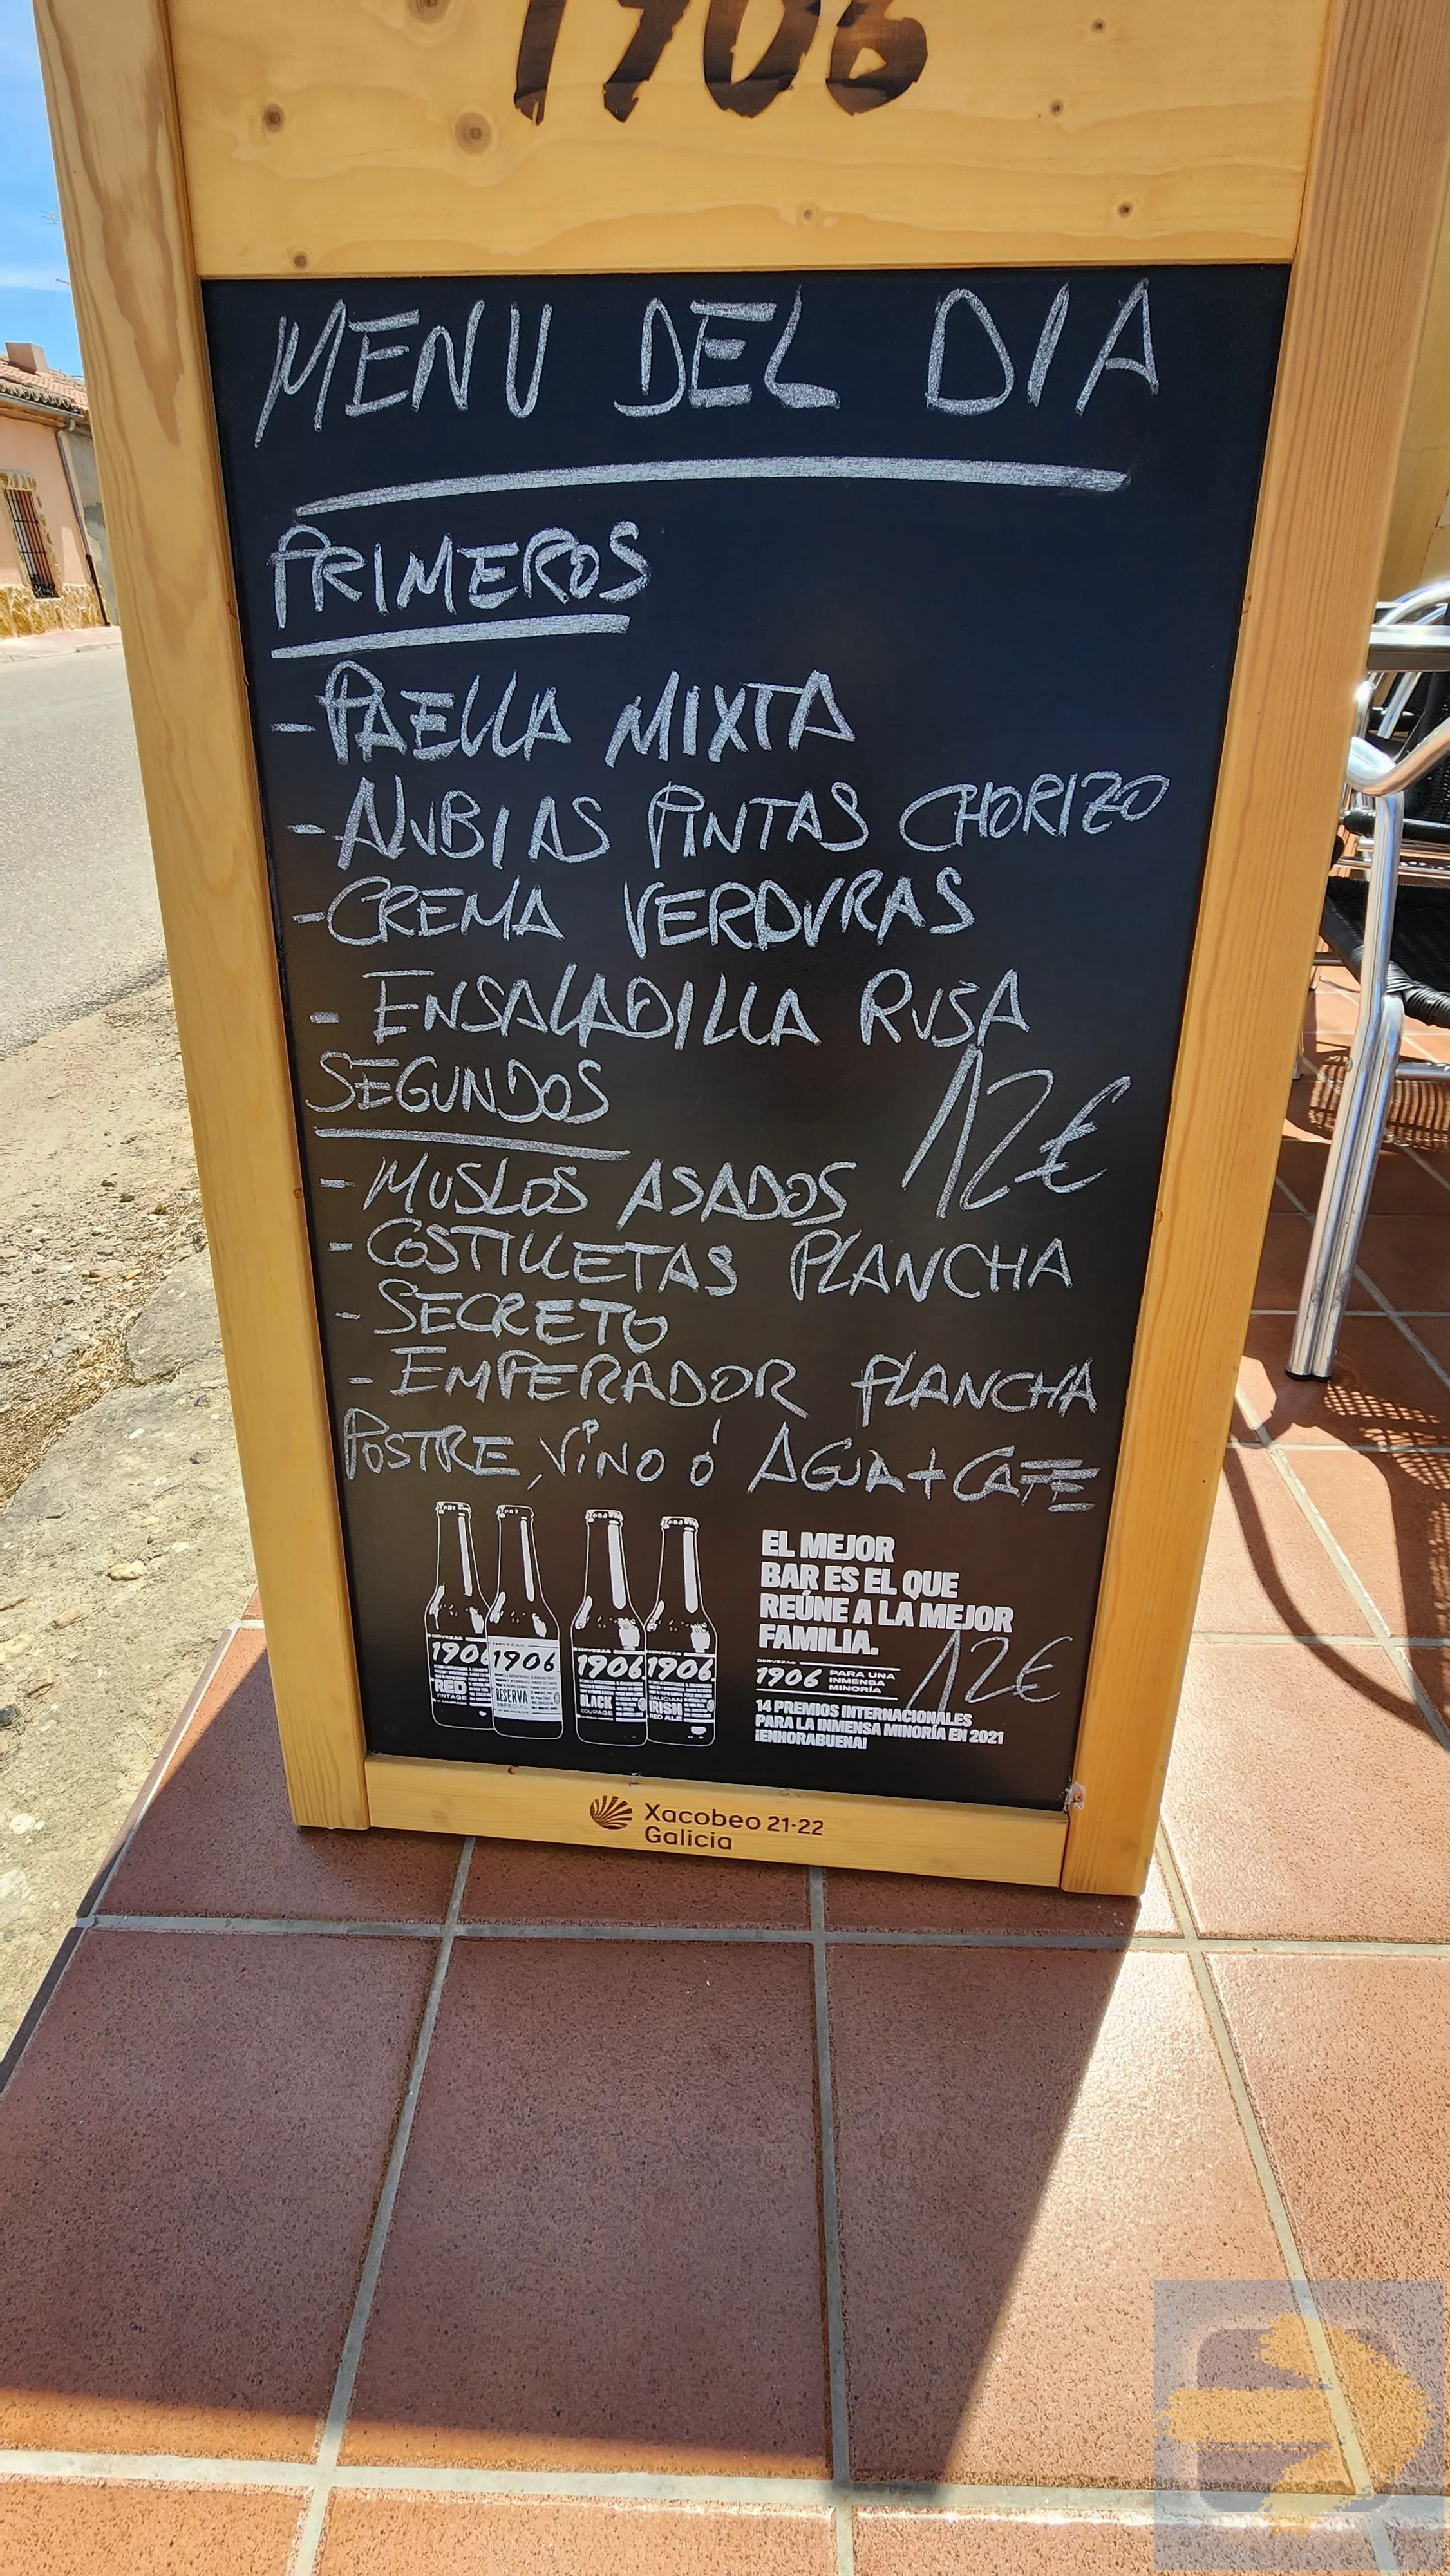 1906
MENU DEL DIA
PRIMEROS
- PAELLA MIXTA
- ALUBIAS PINTAS CHORIZO
- CREMA VERDURAS
- ENSALADILLA RUSA
SEGUNDOS
12€
- MUSLOS ASADOS
- COSTILLETAS PLANCHA
- SECRETO
- EMPERADOR PLANCHA
POSTRE, VINO Ó AGUA + CAFE
EL MEJOR
BAR ES EL QUE
REÚNE A LA MEJOR
FAMILIA.
12€
CERVEZAS
1906
PARA UNA
INMENSA
MINORÍA
14 PREMIOS INTERNACIONALES
PARA LA INMENSA MINORÍA EN 2021
¡ENHORABUENA!
CERVEZAS
1906
RED
VINTAGE
CERVEZAS
1906
RESERVA
ESPECIAL
CERVEZAS
1906
BLACK
COUPAGE
CERVEZAS
1906
GALICIAN
IRISH
RED ALE
Xacobeo 21·22
Galicia